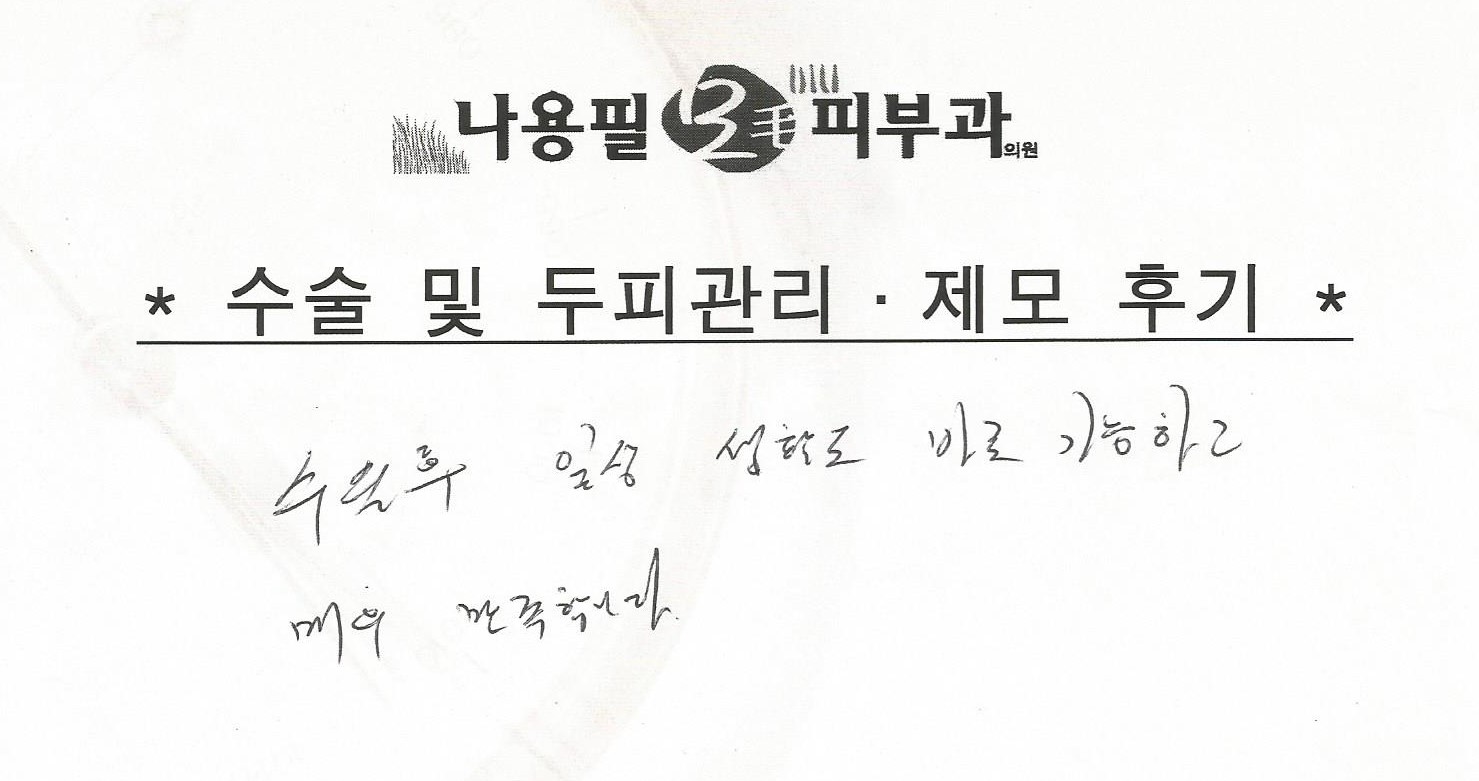 나용필 모毛 피부과의원
* 수술 및 두피관리 · 제모 후기 *
수술후 일상 생활도 바로 가능하고
매우 만족합니다.